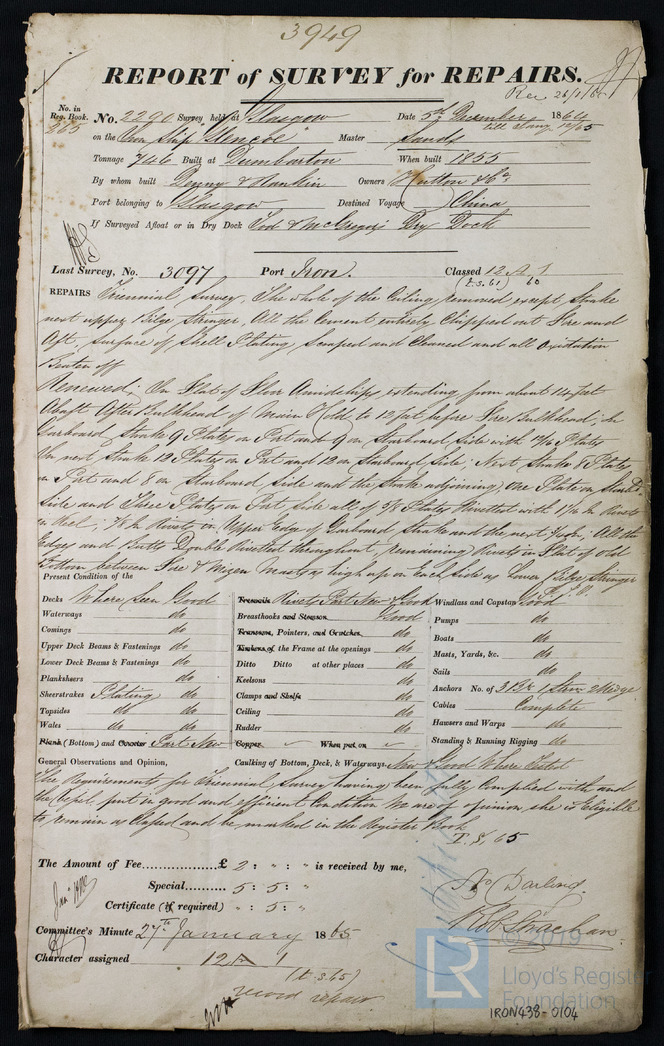 3949
REPORT of SURVEY for REPAIRS.
Rec 26/1/65
No. in Reg. Book. 265 No. 2290 Survey held at Glasgow Date 5th December 1864
till 12/65
on the Iron Ship "Glencoe" Master Sands
Tonnage 746 Built at Dumbarton When built 1855
By whom built Denny & Rankin Owners Hutton & Co.
Port belonging to Glasgow Destined Voyage China
If Surveyed Afloat or in Dry Dock Tod & McGregor's Dry Dock
Last Survey, No. 3097 Port Iron. Classed 12 A 1
(t.s.61) 60
REPAIRS Triennial Survey, The whole of the Ceiling removed except Strake
next upper Bilge Stringer, All the Cement entirely Chipped out Fore and
Aft, surface of Shell Plating, scraped and Cleaned and all Oxidation
Beaten off
Renewed: the Flat of Floor Amidships extending from about 14 feet
Abaft After Bulkhead of Main Hold to 12 feet before Fore Bulkhead; in
Garboard Strake 9 Plates on Port and 9 on Starboard Side with Plates
the next Strake 12 Plates on Port and 12 on Starboard Side; Next Strake 8 Plates
on Port and 8 on Starboard Side and the Strake adjoining, one Plate on Starbd
Side and Three Plates on Port Side all of Plates Rivetted with Rivets
in Keel; Rivets in Upper Edge of Garboard Strake and the next ; All the
Edges and Butts Double Rivetted throughout, remaining Rivets in Flat of old
Bottom between Fore & Mizen Masts as high up on Each Side as Lower Bilge Stringer
P.T.O.
Present Condition of the
Decks Where seen Good
Waterways do
Comings do
Upper Deck Beams & Fastenings do
Lower Deck Beams & Fastenings do
Planksheers do
Sheerstrakes Plating do
Topsides do do
Wales do do
Plank (Bottom) and Counter Part New
Treenails Rivets Part New & Good
Breasthooks and Stemson Good
Transoms, Pointers, and Crutches do
Timbers of the Frame at the openings do
Ditto Ditto at other places do
Keelsons do
Clamps and Shelfs do
Ceiling do
Rudder do
Copper When put on
Caulking of Bottom, Deck, & Waterways New & Good Where Tested
Windlass and Capstan Good
Pumps do
Boats do
Masts, Yards, &c. do
Sails do
Anchors No. of 3 Br 1 Stream 2 Kedge
Cables Complete
Hawsers and Warps do
Standing & Running Rigging do
General Observations and Opinion,
The Requirements for Triennial Survey having been fully Complied with and
the Vessel put in good and efficient Condition We are of opinion she is Eligible
to remain as Classed and be marked in the Register Book
T.S. 65
The Amount of Fee............... £ 2 : " : " is received by me,
Special.......... 5 : 5 : "
Certificate (if required) " : 5 : "
Committee's Minute 27th January 1865
Character assigned 12 A 1
(t.s.65)
record repair
Darling
Robt Strachan
© 2019
LR
Lloyd's Register
Foundation
IRON438-0104